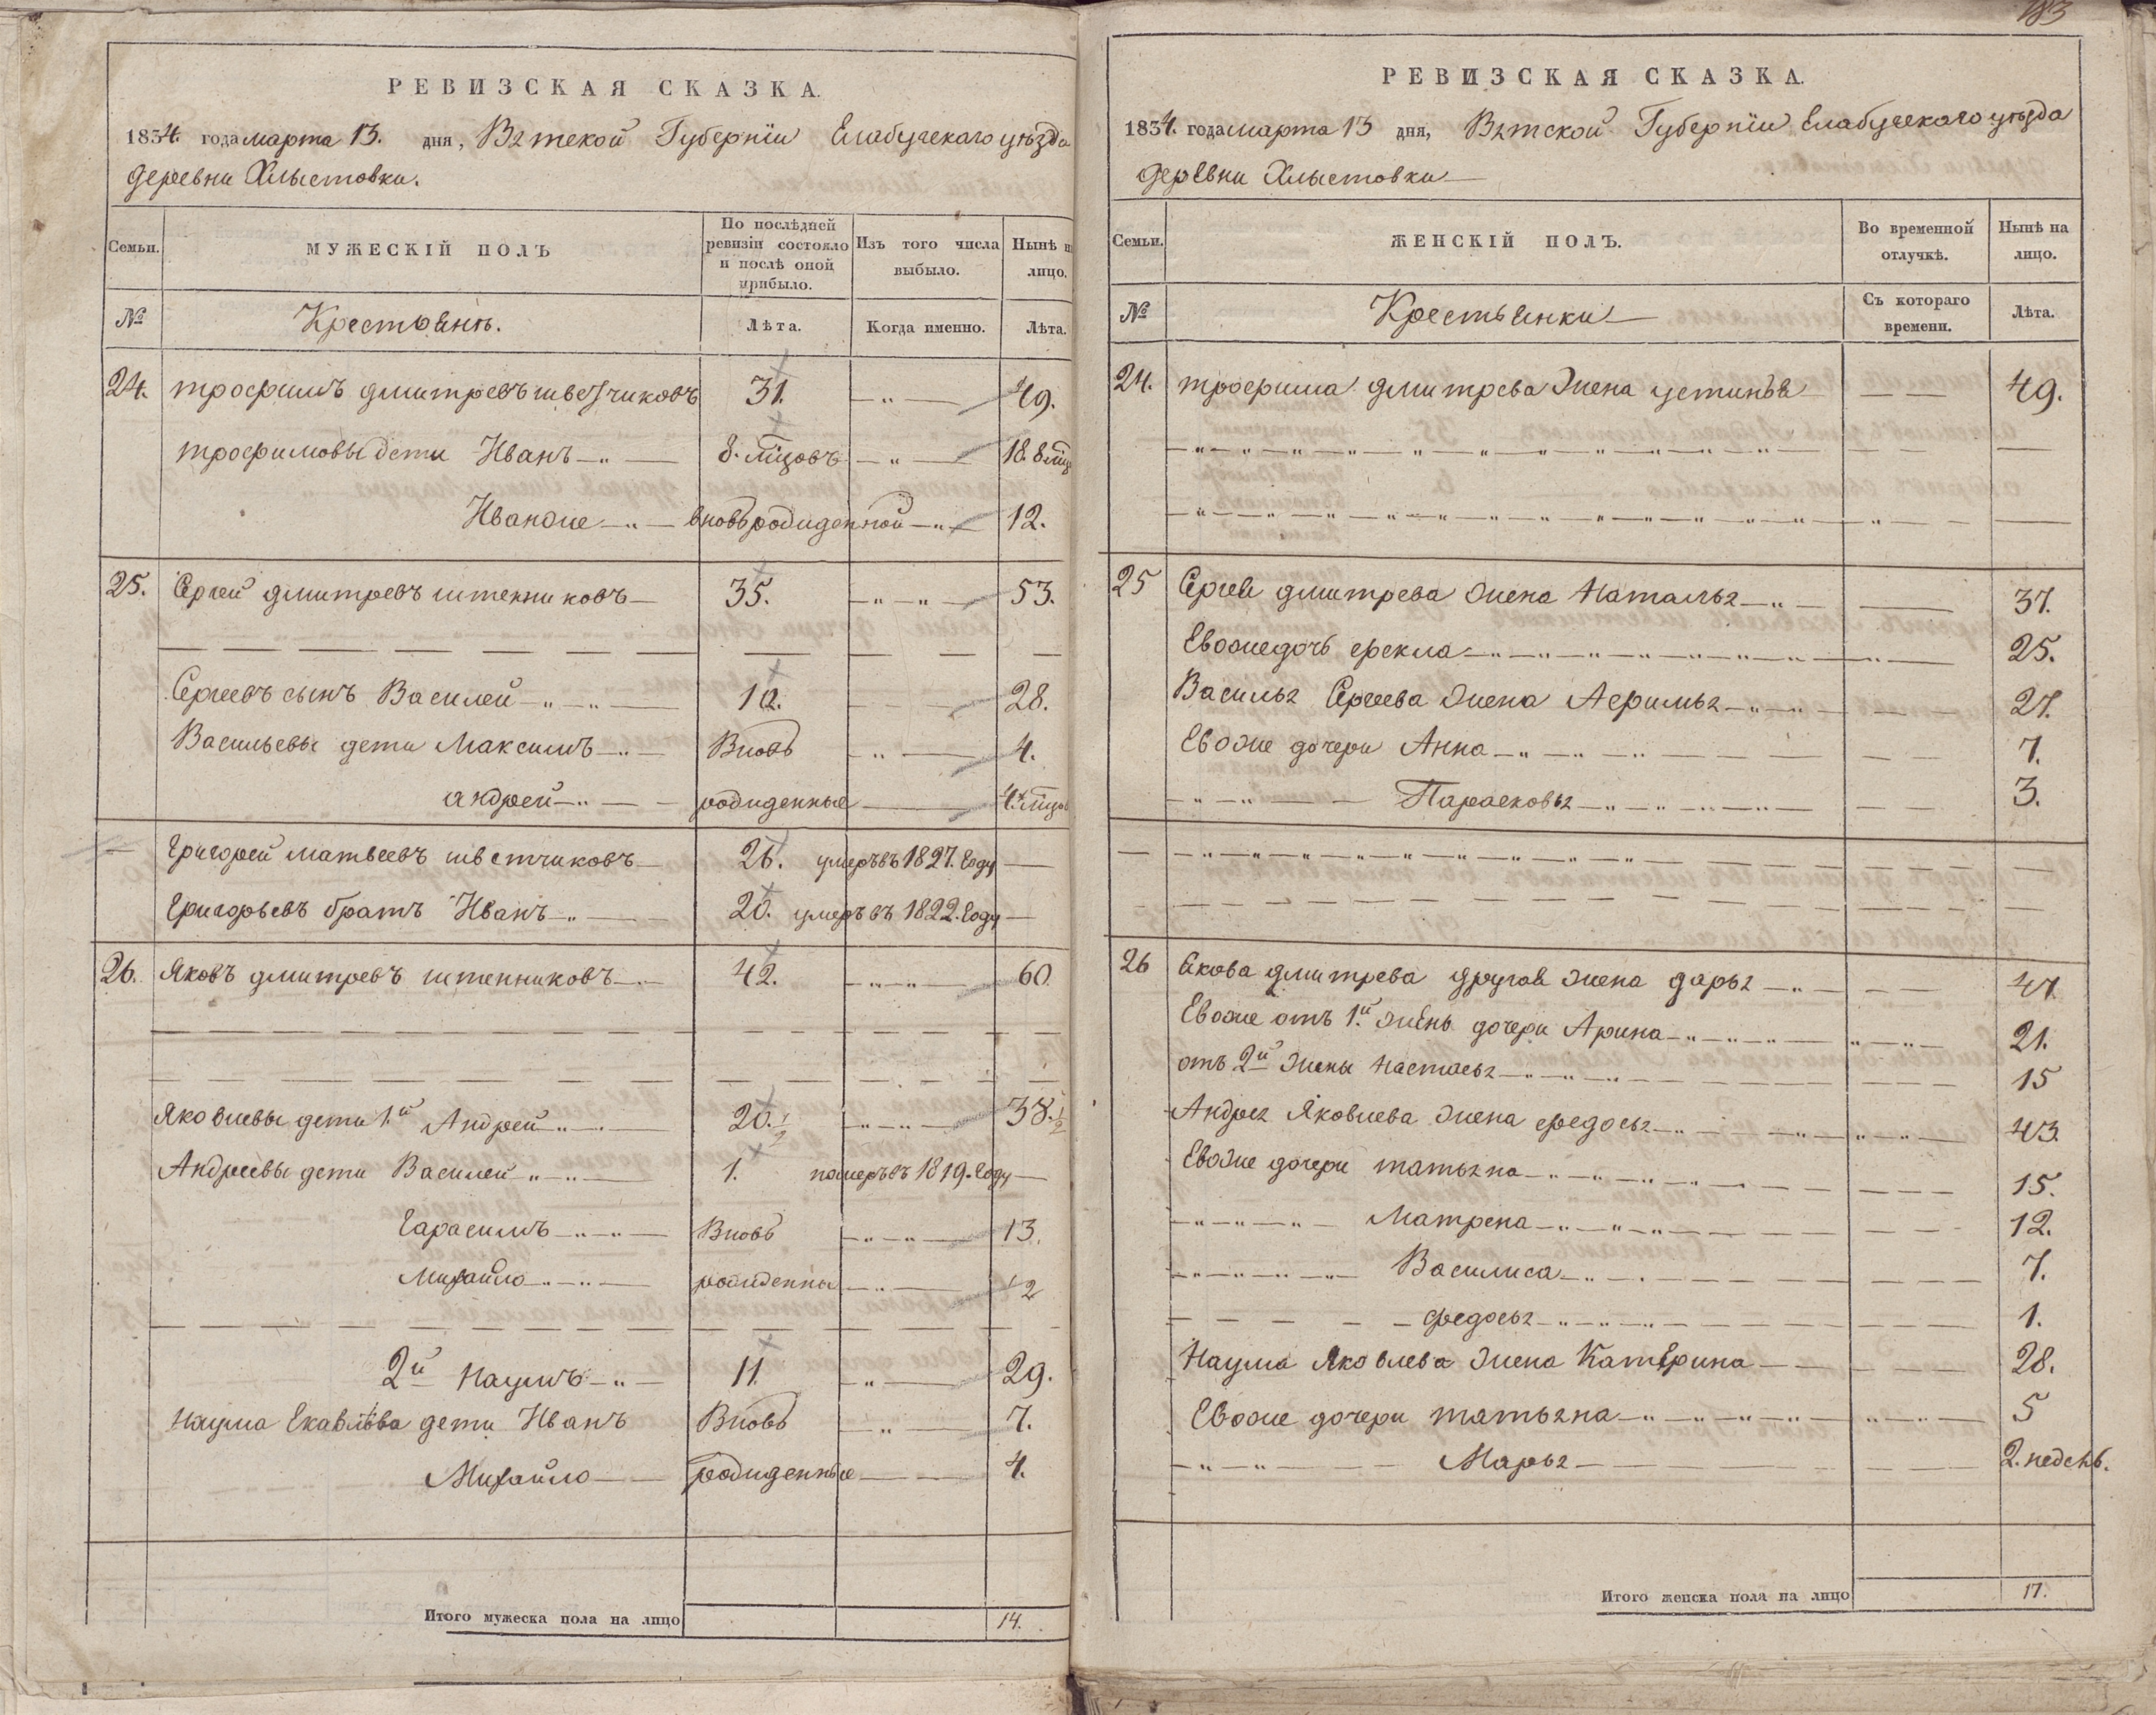 РЕВИЗСКАЯ СКАЗКА.
1834. года марта 13. дня, Вятской Губернїи Елабужскаго уѣзда
деревни Хлыстовки.
Семьи. МУЖЕСКІЙ ПОЛЪ По послѣдней ревизіи состояло и послѣ оной прибыло. Изъ того числа выбыло. Нынѣ на лицо.
№ Крестьянъ. Лѣта. Когда именно. Лѣта.
24. трофимъ дмитревъ шветчиковъ 31. 49.
трофимовы дети Иванъ 8. мцовъ 18. 8 мцо
Иванже вновь рожденной 12.
25. Сергей дмитревъ штенниковъ 35. 53.
Сергеевъ сынъ Василей 10. 28.
Васильевы дети Максимъ Вновь 4.
андрей рожденные 4. мцов
Григорей матвеевъ шветчиковъ 26. умеръ въ 1827. Году
Григорьевъ братъ Иванъ 20. умеръ въ 1822. Году
26. Яковъ дмитревъ штенниковъ 42. 60
Яковлевы дети 1.й Андрей 20. 1/2 38. 1/2
Андреевы дети Василей 1. померъ въ 1819. Году
Гарасимъ Вновь 13.
Михайло рожденны 2
2й Наумъ 11. 29.
Наума Екавлева дети Иванъ Вновь 7.
Михайло рожденные 4.
Итого мужеска пола на лицо 14.
183
РЕВИЗСКАЯ СКАЗКА.
1834. года марта 13 дня, Вятской Губернїи Елабужскаго уѣзда
деревни Хлыстовки
Семьи. ЖЕНСКІЙ ПОЛЪ. Во временной отлучкѣ. Нынѣ на лицо.
№ Крестьянки Съ котораго времени. Лѣта.
24. трофима дмитрева жена устинья 49.
25 Сергея дмитрева жена Наталья 37.
Евоже дочь фекла 25.
Василья Сергеева жена Афимья 27.
Евоже дочери Анна 7.
Парасковья 3.
26 Якова дмитрева другая жена дарья 47
Евоже отъ 1.й жены дочери Арина 21.
отъ 2й жены настасья 15
Андрея Яковлева жена федосья 43.
Евоже дочери татьяна 15.
Матрена 12.
Василиса 7.
федосья 1.
Наума Яковлева жена Катерина 28.
Евоже дочери татьяна 5
Марья 2. недель.
Итого женска пола на лицо 17.